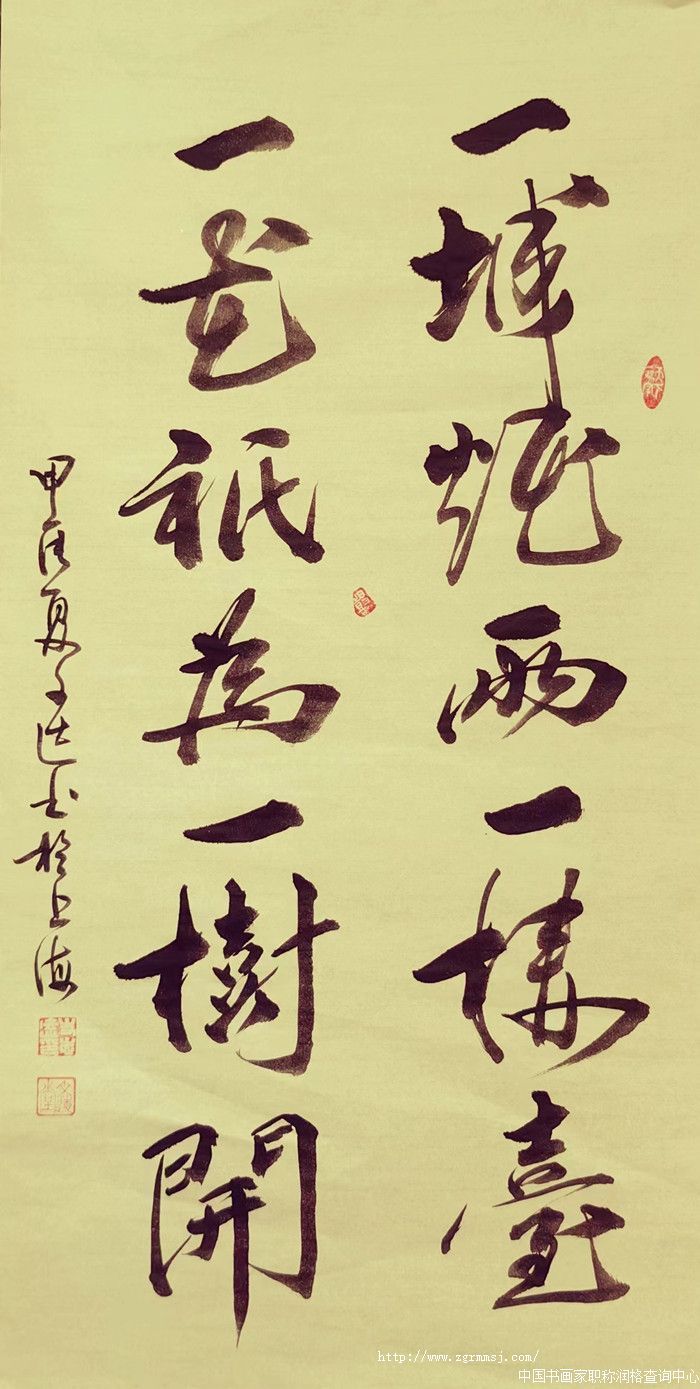 一城烟雨一樓臺
一花祇為一樹開
甲辰夏书於上海
http://www.zgrmmsj.com/
中国书画家职称润格查询中心